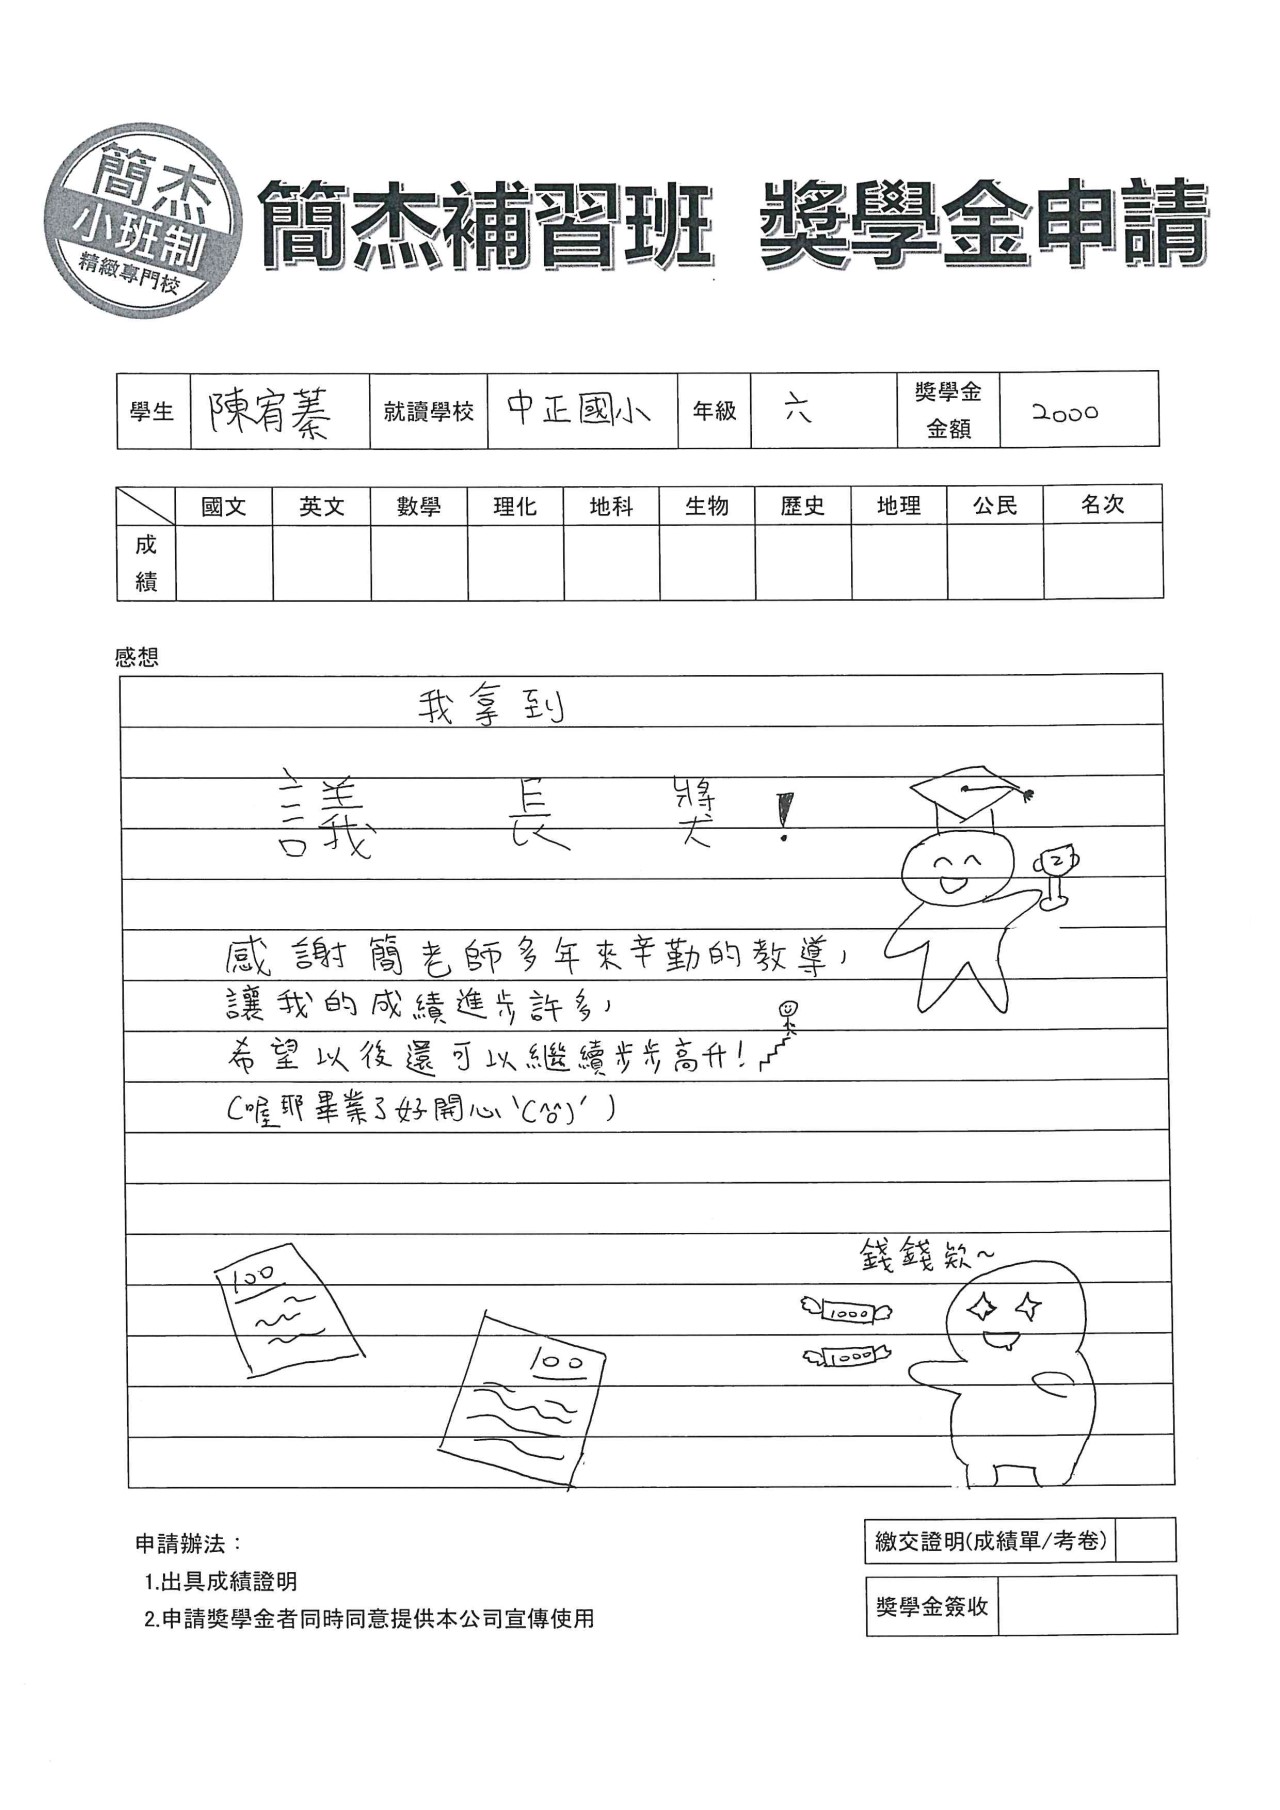 簡杰
小班制
精緻專門校
簡杰補習班 獎學金申請
學生 陳宥蓁 就讀學校 中正國小 年級 六 獎學金金額 2000
國文 英文 數學 理化 地科 生物 歷史 地理 公民 名次
成績
感想
我拿到
議長獎!
2
感謝簡老師多年來辛勤的教導,
讓我的成績進步許多,
希望以後還可以繼續步步高升!
(喔耶畢業了好開心ˋ(^o^)ˊ)
錢錢欸~
100
1000
1000
100
申請辦法:
1.出具成績證明
2.申請獎學金者同時同意提供本公司宣傳使用
繳交證明(成績單/考卷)
獎學金簽收